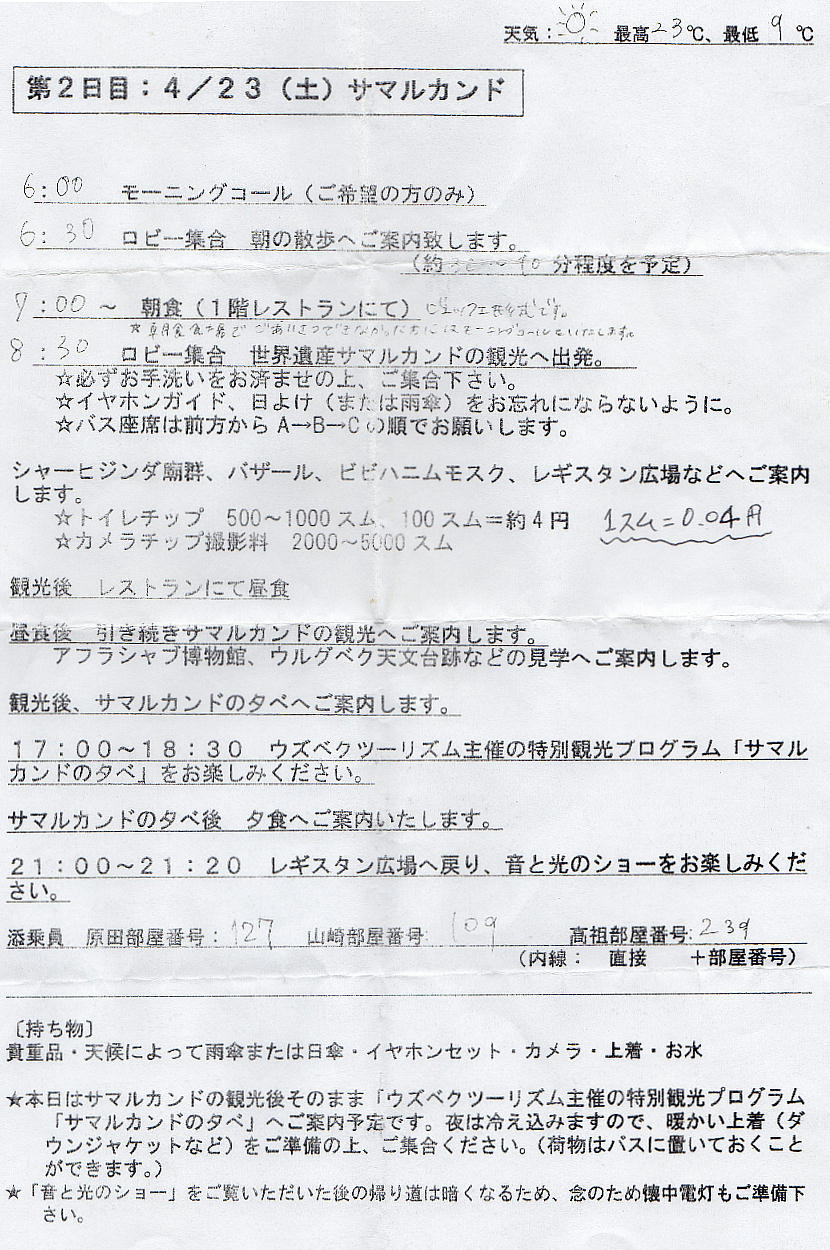 天気： 最高23℃、最低 9 ℃
第２日目：４／２３（土）サマルカンド
6：00 モーニングコール（ご希望の方のみ）
6：30 ロビー集合 朝の散歩へご案内致します。
（約30～40分程度を予定）
7：00～ 朝食（１階レストランにて）ビュッフェ形式です。
☆朝食会場でごあいさつできなかった方にはモーニングコールをいたします。
8：30 ロビー集合 世界遺産サマルカンドの観光へ出発。
☆必ずお手洗いをお済ませの上、ご集合下さい。
☆イヤホンガイド、日よけ（または雨傘）をお忘れにならないように。
☆バス座席は前方から A→B→C の順でお願いします。
シャーヒジンダ廟群、バザール、ビビハニムモスク、レギスタン広場などへご案内
します。
☆トイレチップ 500～1000 スム、100 スム＝約４円 1スム=0.04円
☆カメラチップ撮影料 2000～5000 スム
観光後 レストランにて昼食
昼食後 引き続きサマルカンドの観光へご案内します。
アフラシャブ博物館、ウルグベク天文台跡などの見学へご案内します。
観光後、サマルカンドの夕べへご案内します。
１７：００～１８：３０ ウズベクツーリズム主催の特別観光プログラム「サマル
カンドの夕べ」をお楽しみください。
サマルカンドの夕べ後 夕食へご案内いたします。
２１：００～２１：２０ レギスタン広場へ戻り、音と光のショーをお楽しみくだ
さい。
添乗員 原田部屋番号：127 山崎部屋番号:109 髙祖部屋番号:239
（内線： 直接 ＋部屋番号）
〔持ち物〕
貴重品・天候によって雨傘または日傘・イヤホンセット・カメラ・上着・お水
★本日はサマルカンドの観光後そのまま「ウズベクツーリズム主催の特別観光プログラム
「サマルカンドの夕べ」へご案内予定です。夜は冷え込みますので、暖かい上着（ダ
ウンジャケットなど）をご準備の上、ご集合ください。（荷物はバスに置いておくこと
ができます。）
★「音と光のショー」をご覧いただいた後の帰り道は暗くなるため、念のため懐中電灯もご準備下
さい。